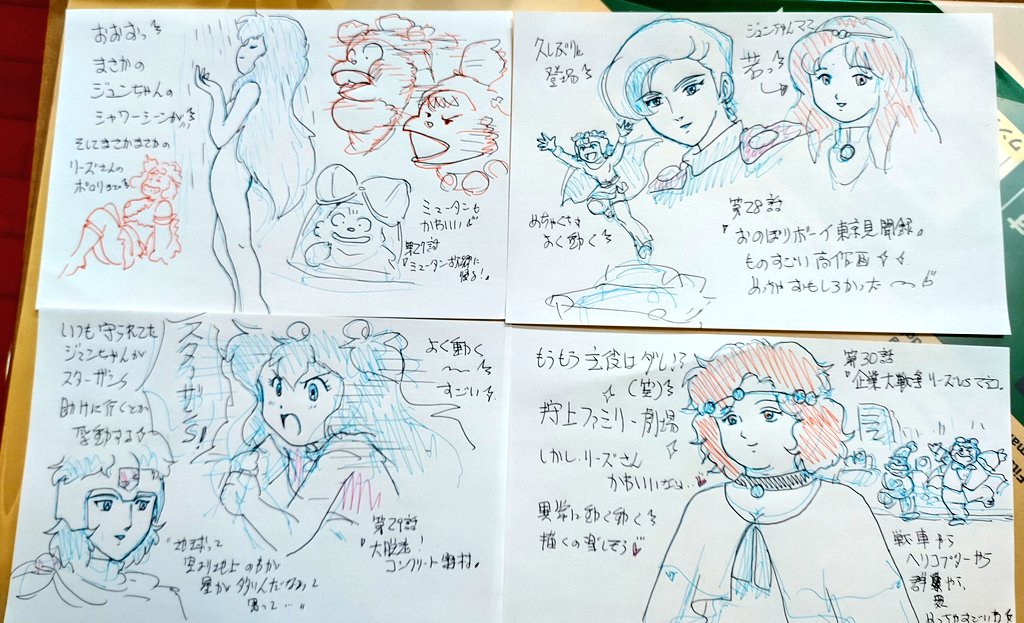 おおおっ
まさかの
ジュンちゃんの
シャワーシーンが!!
そしてまさかまさかの
リーズさんの
ポロリまで
ミュータンも
かわいい
第27話
『ミュータン故郷に
帰る!』
久しぶりに
登場
ジュンちゃんママ
若っ
めちゃくちゃ
よく動く
第28話
『おのぼりボーイ東京見聞録』
ものすごい高作画
めっちゃおもしろかった〜
いつも守られてた
ジュンちゃんが
スターザンを
助けに行くとか
感動する
スターザンS!
よく動く
〜
すごい
第29話
『大脱走!
コンクリート
"地球って
空より地上の方が
星が
って…"
もうもう主役はダレ!?
(笑)
狩上ファミリー劇場
しかしリーズさん
かわいいなぁ…
異常に動く動く
描くの楽しそう
第30話
『企業大戦争リーズVSマネコ』
戦車やら
ヘリコプターやら
群衆やで、
めっちゃすごいわ